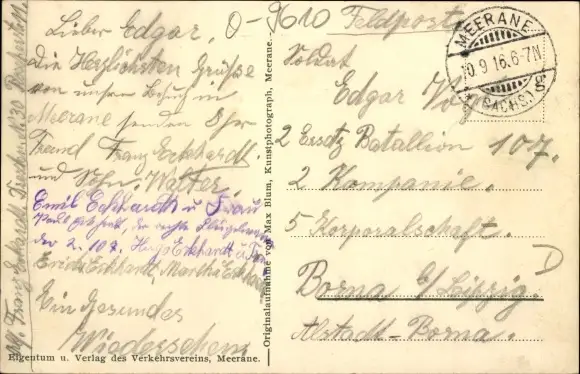 Lieber Edgar,
Die Herzlichsten Grüsse
von unsern Besuch in
Meerane senden Ihr
Freund Franz Eckhardt.
und Sohn Walter.
Emil Eckhardt u Frau
der 2. 107. Hugo Eckhardt u Frau
Erich Eckhardt, Martha Eckhardt
Ein Gesundes
Wiedersehen
Eigentum u. Verlag des Verkehrsvereins, Meerane.
Abs. Franz Eckhardt Dresden N 30
Originalaufnahme von Max Blum, Kunstphotograph, Meerane.
O-9610
Feldpost
MEERANE
9 16.6-7N
(SACHS.)
Soldat
Edgar
2 Ersatz Batallion 107.
2 Kompanie.
5 Korporalschaft.
Borna b/Leipzig.
Altstadt-Borna.